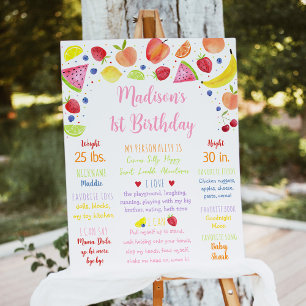 Madison's
1st Birthday
Weight
25 lbs.
NICKNAME
Maddie
FAVORITE TOYS
dolls, blocks,
my toy kitchen
I CAN SAY
Mama Dada
go bi more
bye bye
MY PERSONALITY IS
Curious Silly Happy
Sweet Lovable Adventurous
I LOVE
the playground, laughing,
running, playing with my big
brother, eating, bath time
I CAN
Pull myself up to stand,
walk holding onto your hand,
clap my hands, feed myself,
shake my head no, wave hi
Height
30 in.
FAVORITE FOOD
Chicken nuggets,
apples, cheese,
pasta, cereal
FAVORITE BOOK
Goodnight
Moon
FAVORITE SONG
Baby
Shark